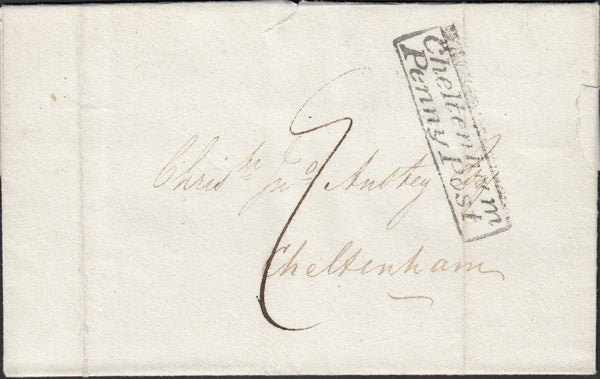 Cheltenham
Penny Post
Chris^r Jn^o Anstey Esq^r
Cheltenham